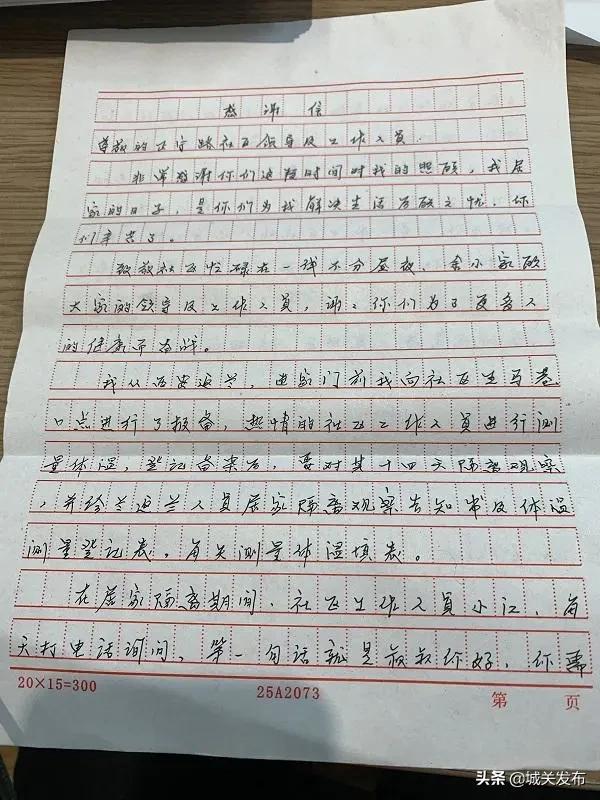 感谢信
尊敬的正宁路社区领导及工作人员.
非常感谢你们这段时间对我的照顾，我居
家的日子，是你们为我解决生活后顾之忧，你
们辛苦了。
致敬社区忙碌在一线不分昼夜、舍小家顾
大家的领导及工作人员，谢谢你们为了更多人
的健康而奋战。
我从西安返兰，进家门前我向社区生马巷
口点进行了报备，热情的社区工作人员进行测
量体温，登记备案后，要对其十四天隔离观察
，并给兰返兰人员居家隔离观察告知书及体温
测量登记表，每天测量体温填表。
在居家隔离期间，社区工作人员小江，每
天打电话询问，第一句话就是叔叔你好，你需
20×15=300
25A2073
第 页
头条 @城关发布